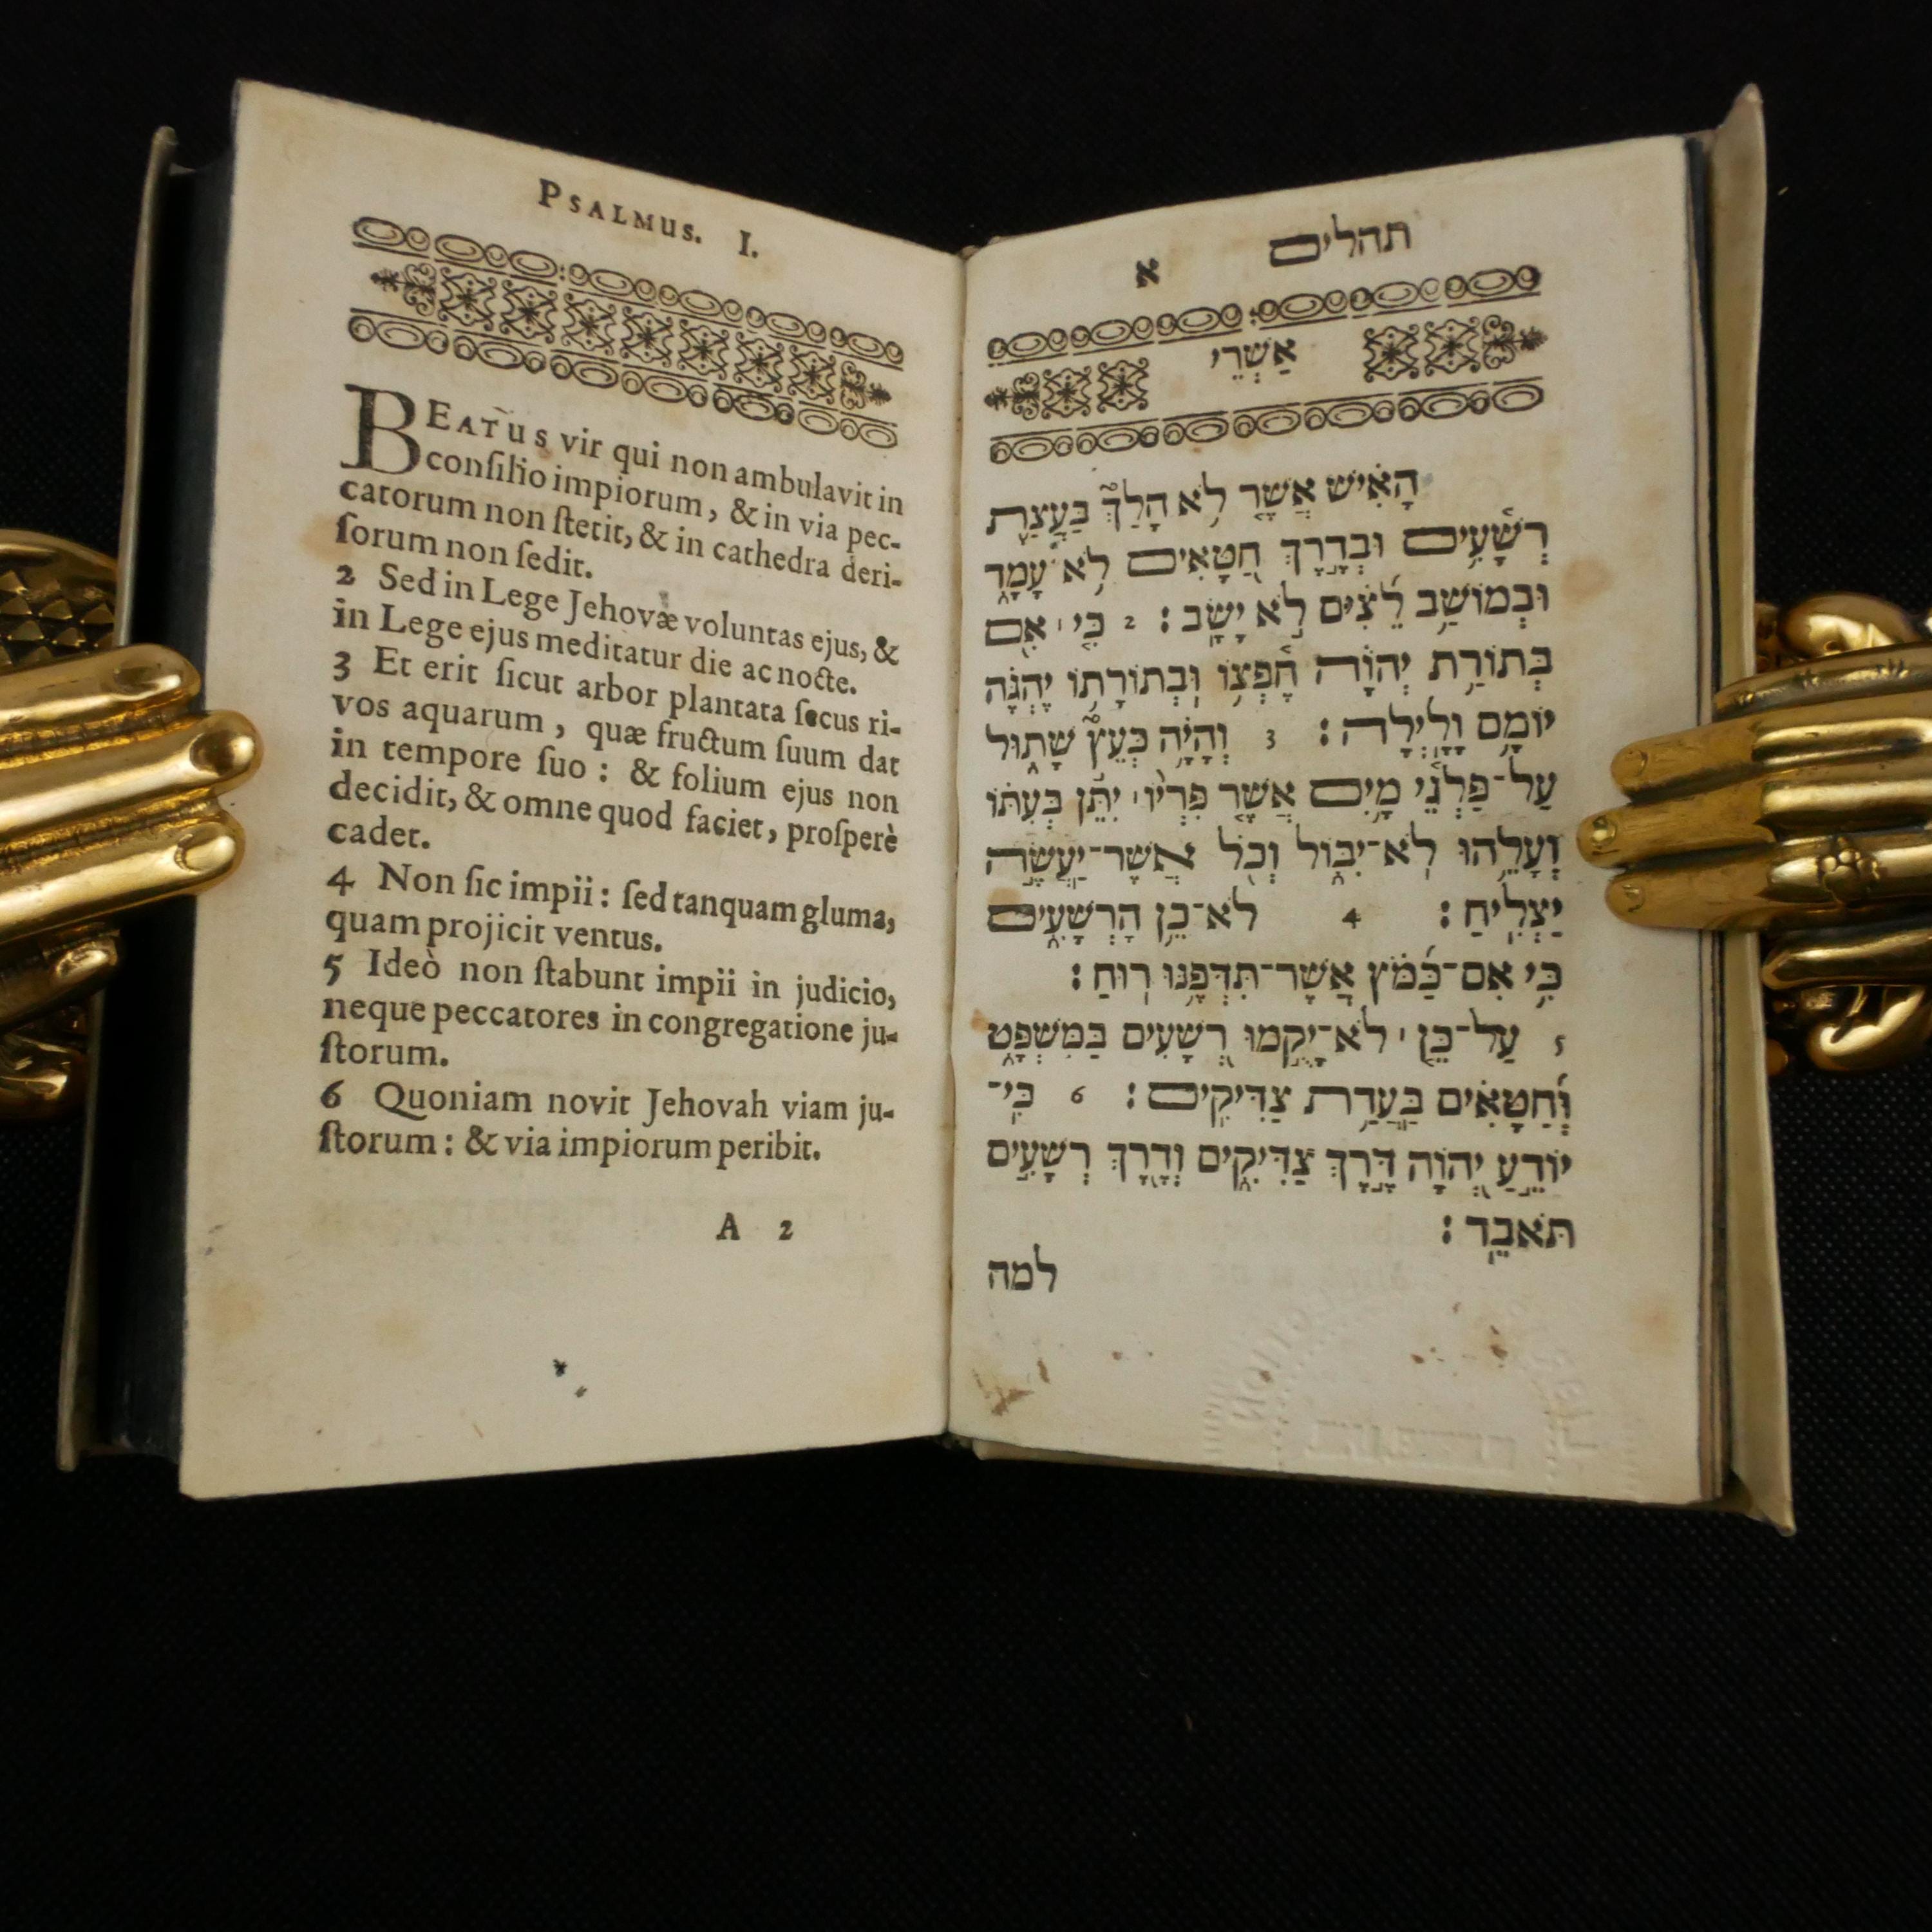 PSALMUS. I.
BEATUS vir qui non ambulavit in
conſilio impiorum, & in via pec-
catorum non ſtetit, & in cathedra deri-
ſorum non ſedit.
2 Sed in Lege Jehovæ voluntas ejus, &
in Lege ejus meditatur die ac nocte.
3 Et erit ſicut arbor plantata ſecus ri-
vos aquarum, quæ fructum ſuum dat
in tempore ſuo: & folium ejus non
decidit, & omne quod faciet, proſperè
cadet.
4 Non ſic impii: ſed tanquam gluma,
quam projicit ventus.
5 Ideò non ſtabunt impii in judicio,
neque peccatores in congregatione ju-
ſtorum.
6 Quoniam novit Jehovah viam ju-
ſtorum: & via impiorum peribit.
A 2
תהלים א
אַשְׁרֵי
הָאִ֗ישׁ אֲשֶׁ֤ר לֹ֥א הָלַךְ֮ בַּעֲצַ֪ת
רְשָׁ֫עִ֥ים וּבְדֶ֣רֶךְ חַ֭טָּאִים לֹ֥א עָמָ֑ד
וּבְמוֹשַׁ֥ב לֵ֝צִ֗ים לֹ֣א יָשָֽׁב׃ 2 כִּ֤י ׀ אִ֥ם
בְּתוֹרַ֥ת יְהוָֹ֗ה חֶ֫פְצ֥וֹ וּֽבְתוֹרָת֥וֹ יֶהְגֶּ֗ה
יוֹמָ֥ם וָלָֽיְלָה׃ 3 וְֽהָיָ֗ה כְּעֵץ֮ שָׁת֪וּל
עַֽל־פַּלְגֵ֫י מָ֥יִם אֲשֶׁ֤ר פִּרְי֨וֹ ׀ יִתֵּ֬ן בְּעִתּ֗וֹ
וְעָלֵ֥הוּ לֹֽא־יִבּ֑וֹל וְכֹ֖ל אֲשֶׁר־יַעֲשֶׂ֣ה
יַצְלִֽיחַ׃ 4 לֹא־כֵ֥ן הָרְשָׁעִ֑ים
כִּ֥י אִם־כַּ֝מֹּ֗ץ אֲֽשֶׁר־תִּדְּפֶ֥נּוּ רֽוּחַ׃
5 עַל־כֵּ֤ן ׀ לֹא־יָקֻ֣מוּ רְ֭שָׁעִים בַּמִּשְׁפָּ֑ט
וְ֝חַטָּאִ֗ים בַּעֲדַ֥ת צַדִּיקִֽים׃ 6 כִּֽי־
יוֹדֵ֣עַ יְ֭הוָֹה דֶּ֣רֶךְ צַדִּיקִ֑ים וְדֶ֖רֶךְ רְשָׁעִ֣ים
תֹּאבֵֽד׃
למה